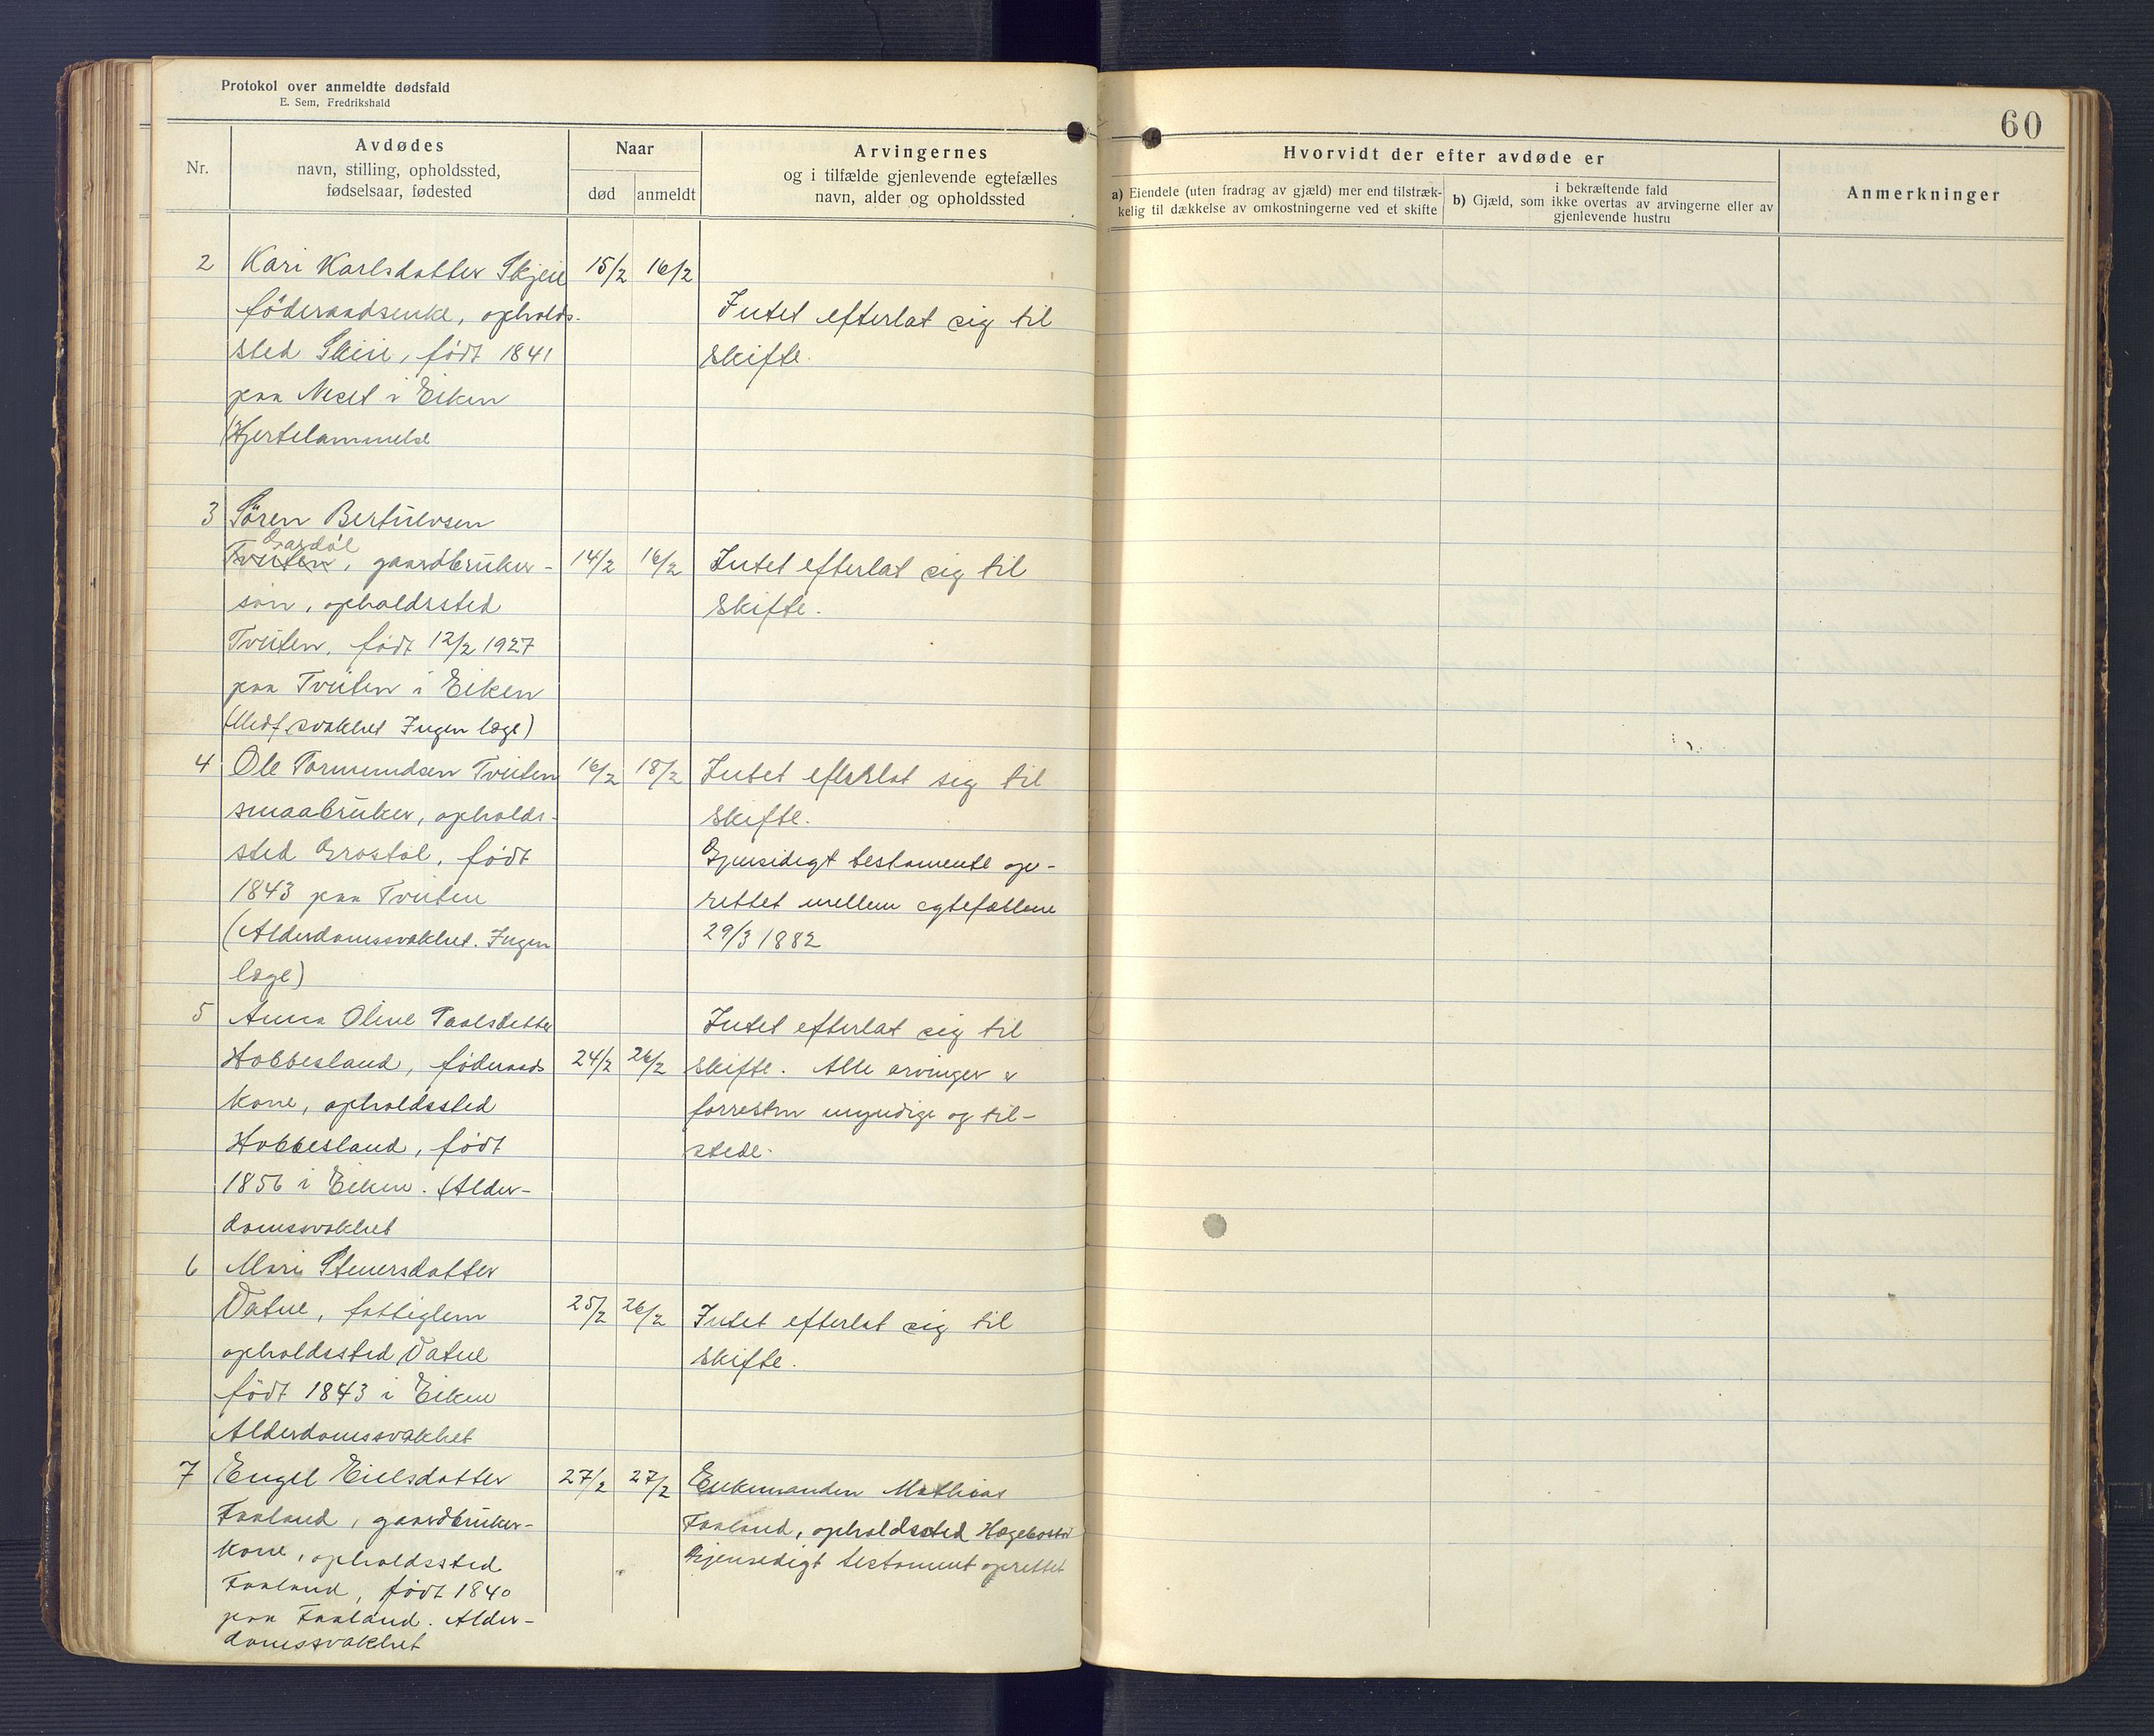 Protokol over anmeldte dødsfald
E. Sem, Fredrikshald
60
Nr.
Avdødes
navn, stilling, opholdssted,
fødselsaar, fødested
Naar
død
anmeldt
Arvingernes
og i tilfælde gjenlevende egtefælles
navn, alder og opholdssted
Hvorvidt der efter avdøde er
a) Eiendele (uten fradrag av gjæld) mer end tilstræk-
kelig til dækkelse av omkostningerne ved et skifte
i bekræftende fald
b) Gjæld, som ikke overtas av arvingerne eller av
gjenlevende hustru
Anmerkninger
2 Kari Karlsdatter Skjeie 15/2 16/2
föderaadsenke, opholds- Intet efterlat sig til
sted Skeie, født 1841 skifte.
paa Neset i Eiken
(Hjertelammelse
3 Sören Bertulvsen
Gardöl
Tveiten, gaardbruker- 14/2 16/2 Intet efterlat sig til
sön, opholdssted skifte.
Tveiten, født 12/2 1927
paa Tveiten i Eiken
(Medf. svakhet Ingen læge)
4 Ole Tormundsen Tveiten 16/2 18/2 Intet efterlat sig til
smaabruker, opholds- skifte.
sted Grostöl, født Gjensidigt testamente op-
1843 paa Tveiten rettet mellem egtefællene
(Alderdomssvakhet. Ingen 29/3 1882
læge)
5 Anna Oline Paalsdatter Intet efterlat sig til
Hobbesland, föderaads 24/2 26/2 skifte. Alle arvinger er
kone, opholdssted forresten myndige og til-
Hobbesland, født stede.
1856 i Eiken. (Alder-
domssvakhet
6 Mari Stenersdatter
Vatne, fattiglem 25/2 26/2 Intet efterlat sig til
opholdssted Vatne skifte.
født 1843 i Eiken
Alderdomssvakhet
7 Engel Eielsdatter 27/2 27/2 Enkemanden Mathias
Faaland, gaardbruker- Faaland, opholdssted Hægebostad
kone, opholdssted Gjensedigt testament oprettet
Faaland, født 1840
paa Faaland. Alder-
domssvakhet